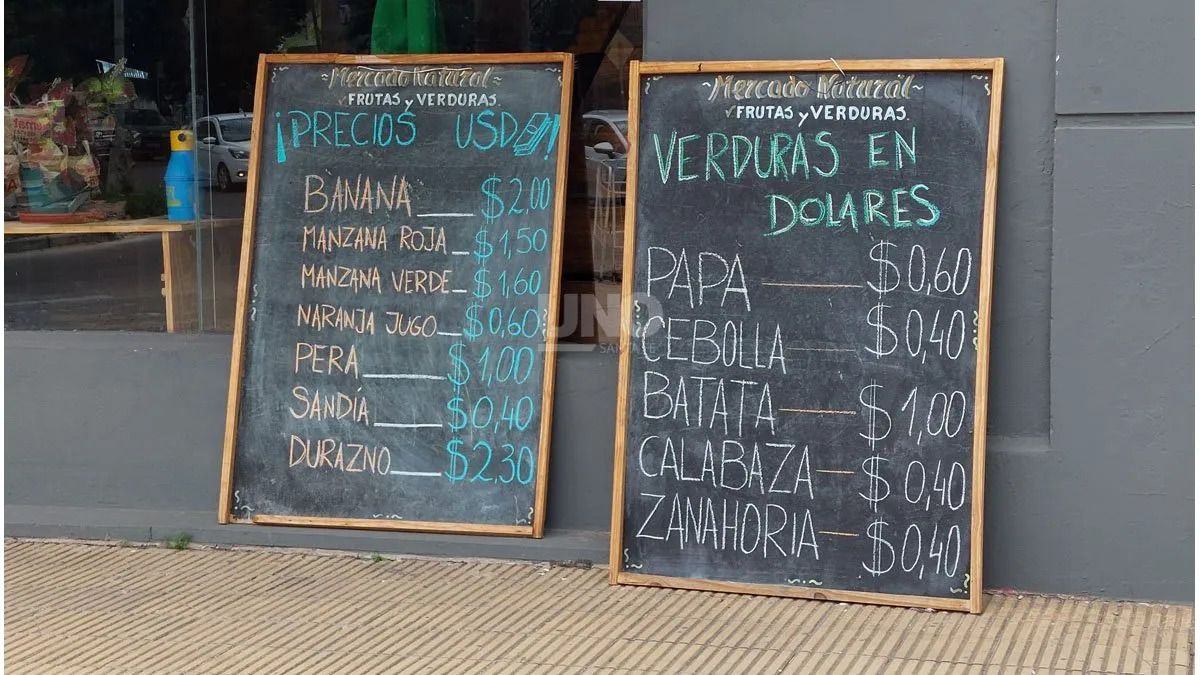 ~Mercado Natural~
FRUTAS y VERDURAS
¡PRECIOS USD!
BANANA $2,00
MANZANA ROJA $1,50
MANZANA VERDE $1,60
NARANJA JUGO $0,60
PERA $1,00
SANDÍA $0,40
DURAZNO $2,30
~Mercado Natural~
FRUTAS y VERDURAS
VERDURAS EN
DOLARES
PAPA $0,60
CEBOLLA $0,40
BATATA $1,00
CALABAZA $0,40
ZANAHORIA $0,40
UNO
SANTA FE